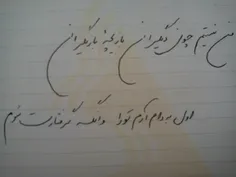 من نیستم چون دیگران بازیچه بازیگران
اول به دام آرم تو را وانگه گرفتارت شوم